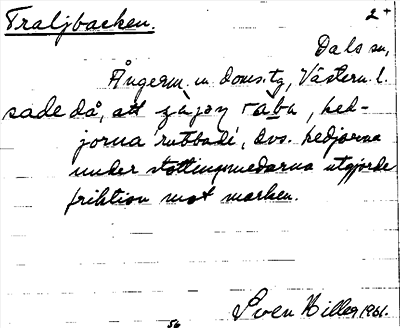 Traljbacken.
2+
Dals sn,
Ångerm. v. doms.tg, Västern. l.
sade då, att ... raba, hed-
jorna 'rubbade', dvs. hedjorna
under stöttingmedarna utgjorde
friktion mot marken.
Sven Hillea 1961.
56